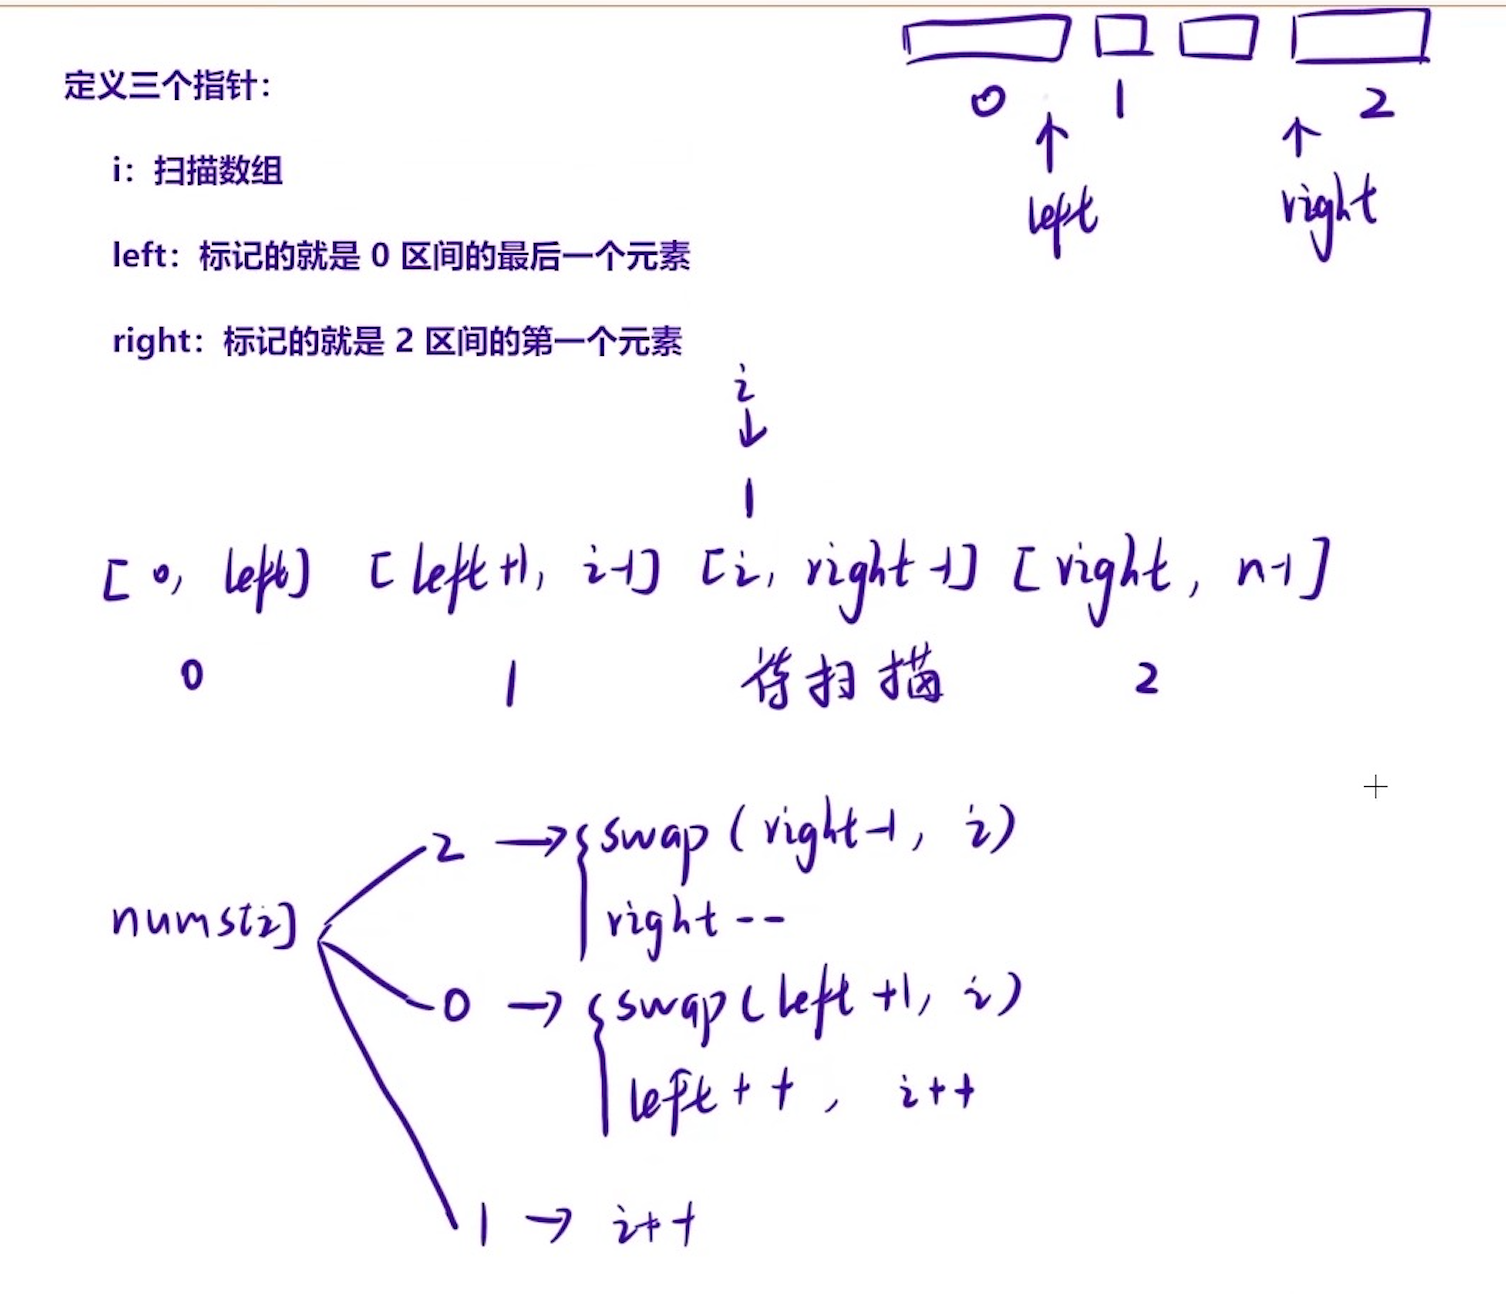 0 1 2
定义三个指针：
i：扫描数组
left right
left：标记的就是 0 区间的最后一个元素
right：标记的就是 2 区间的第一个元素
i
1
[0, left] [left+1, i-1] [i, right-1] [right, n-1]
0 1 待扫描 2
2 → swap(right-1, i)
nums[i] right--
0 → swap(left+1, i)
left++, i++
1 → i++